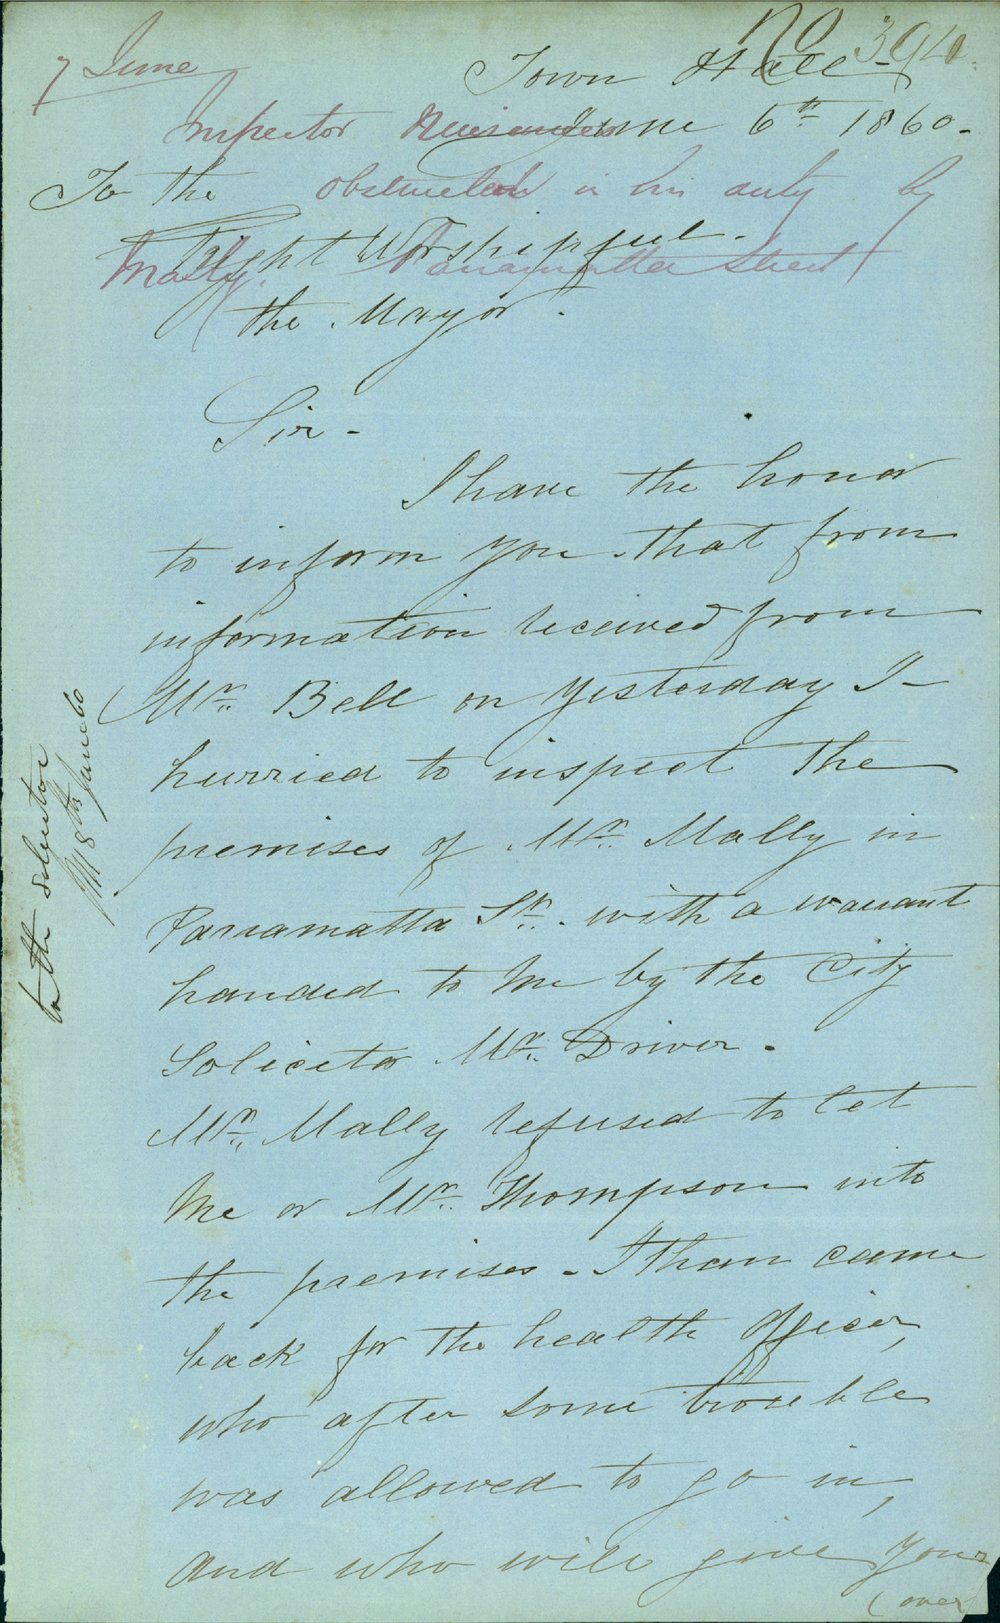 No 394
7 June
Town Hall
June 6th 1860.
Inspector Nuisances
To the
obstructed in his duty by
Right Worshipful.
Mally. Parramatta Street
the Mayor.
Sir-
I have the honor
to inform you that from
information received from
Mr. Bell on yesterday I
hurried to inspect the
premises of Mr. Mally in
Parramatta St. with a warrant
handed to me by the City
Solicitor Mr. Driver.
Mr. Mally refused to let
me or Mr. Thompson into
the premises - I than came
back for the health officer,
who after some trouble
was allowed to go in,
and who will give your
(over)
to the Solicitor
8th June 60